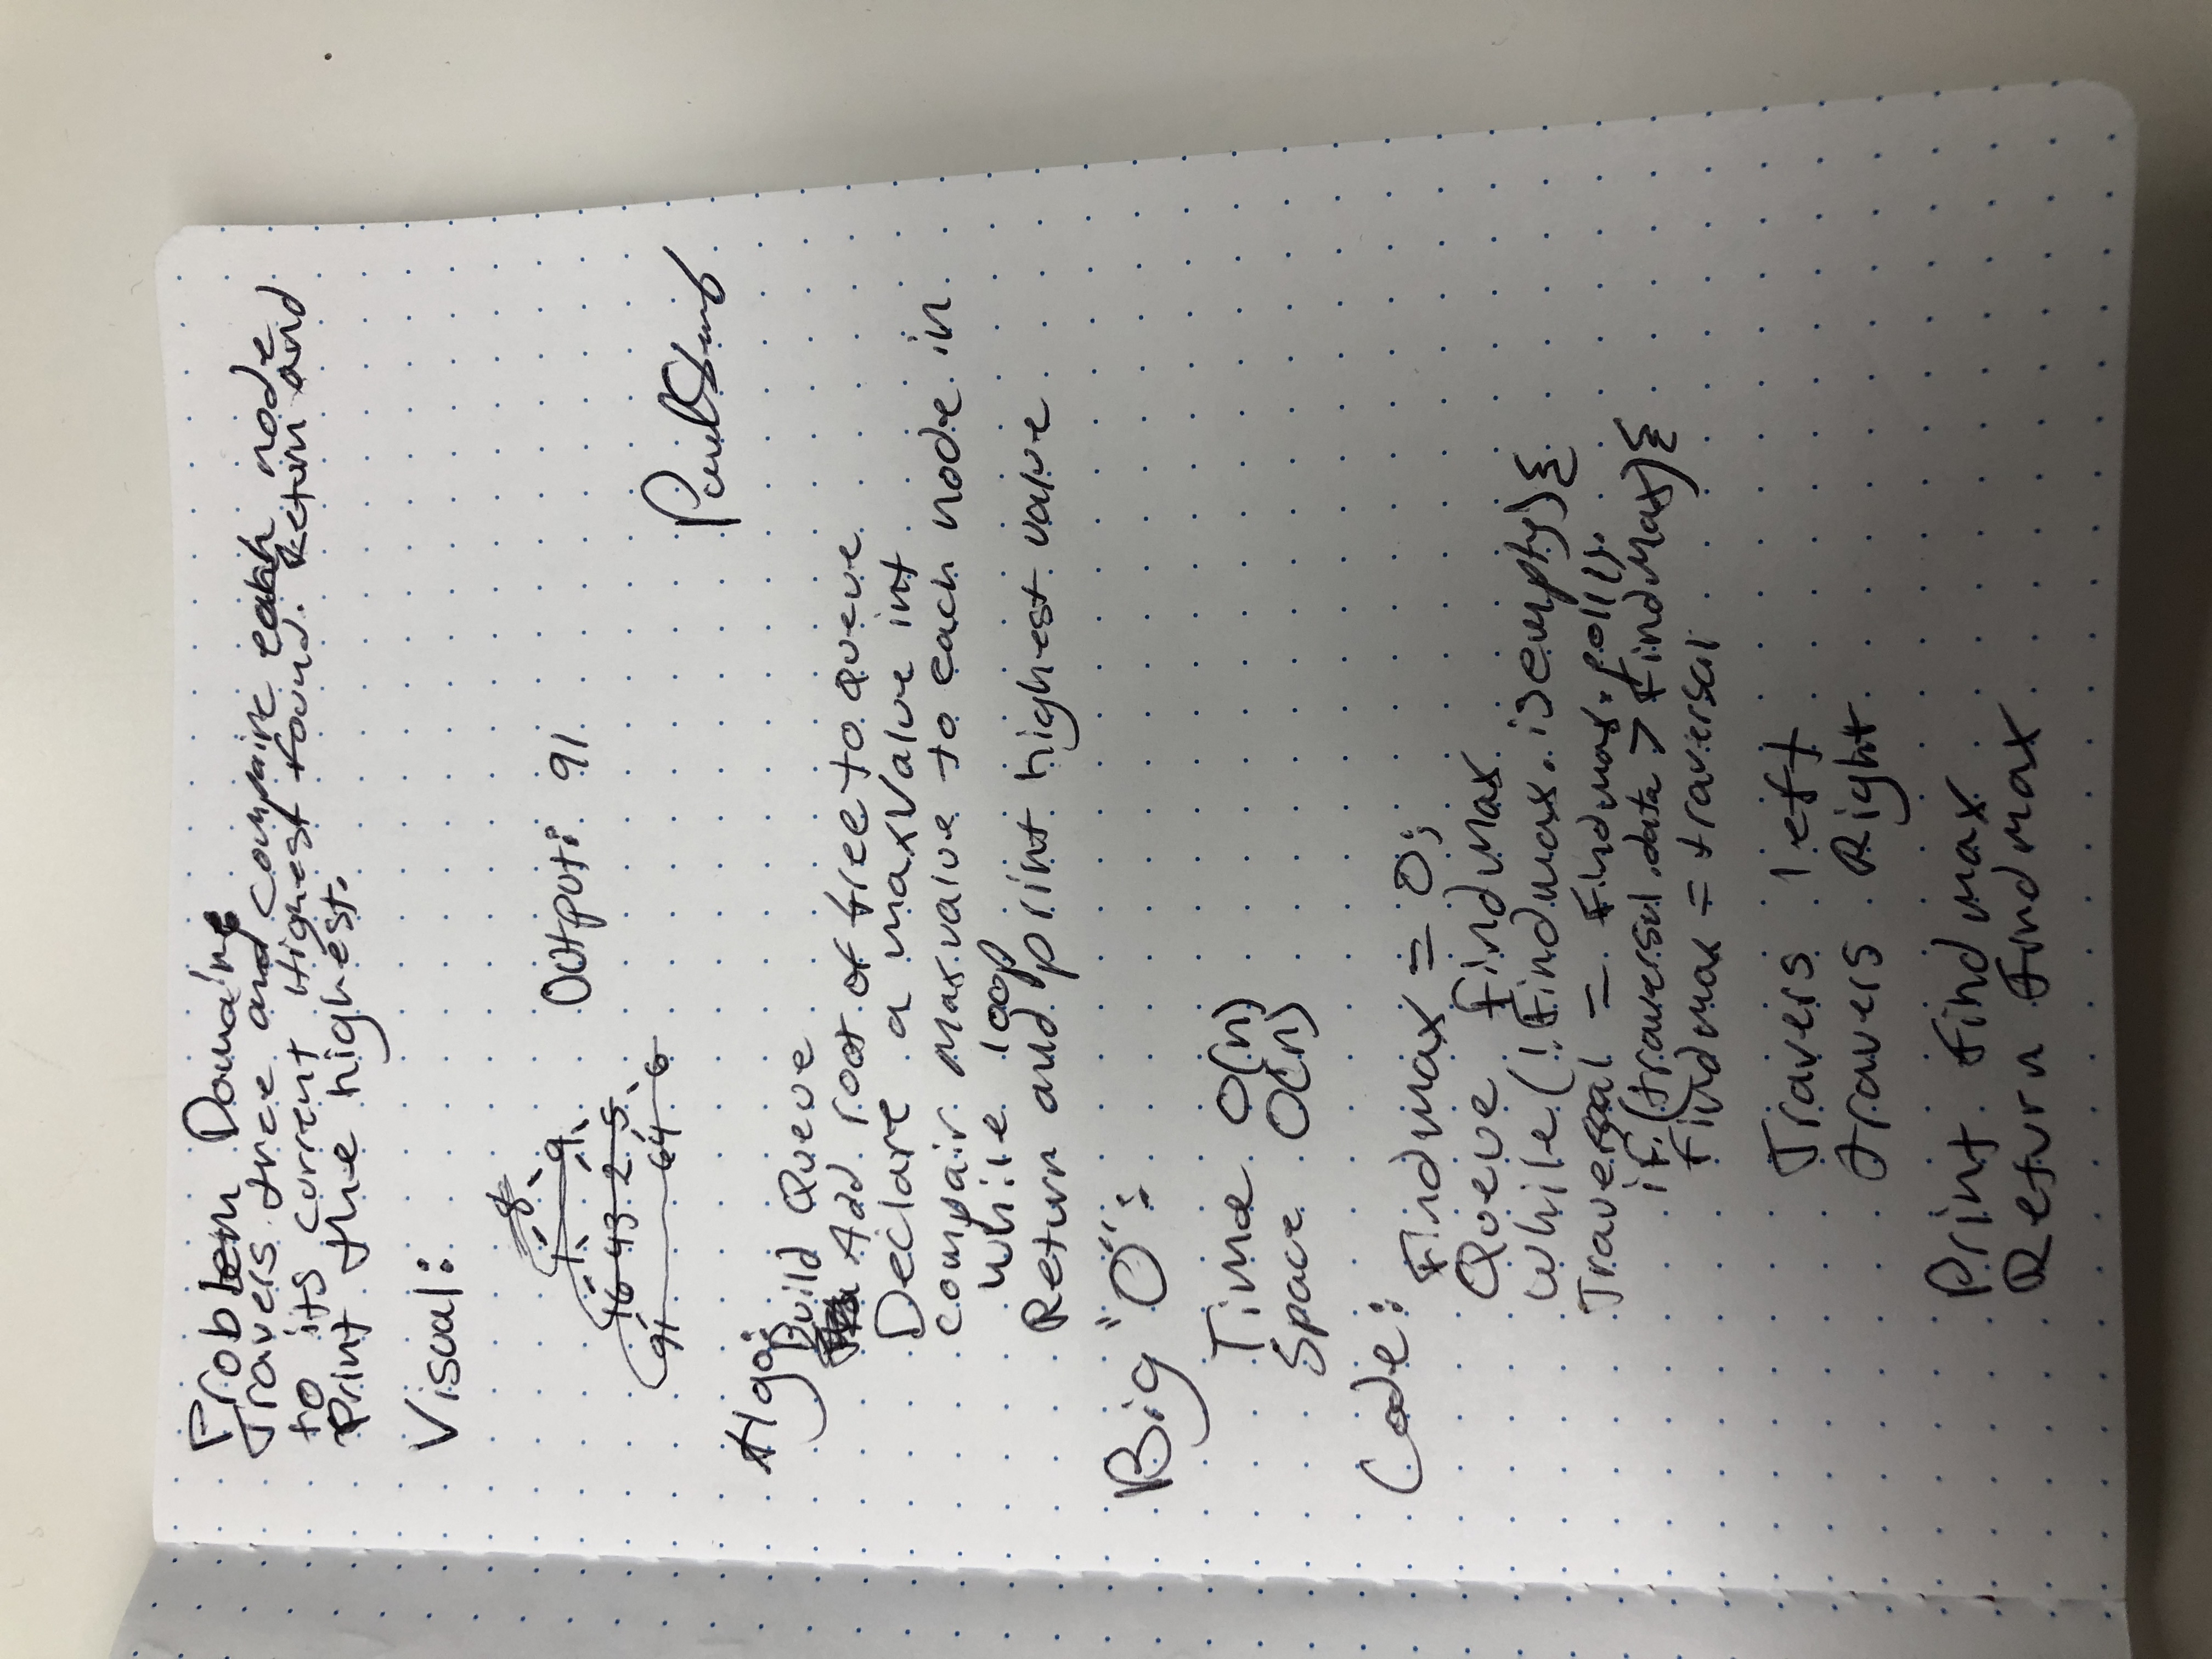 Problem Domaine
Travers tree and compaire each node
to its current Highest found. Return and
Print the highest.
Visual:
8
1 9
16 43 2 5
91 64 6
Output: 91
Algo:
Build Queue
Add root of tree to Queue
Declare a maxValue int
compair maxvalue to each node in
while loop
Return and print highest value
Big "O":
Time O(n)
Space O(n)
Code:
Findmax = 0;
Queue findMax
While(!Findmax.isempty){
Traversal = Findmax.poll().
if(traversal.data > FindMax){
findmax = traversal
Travers left
travers Right
Print findmax
Return findmax